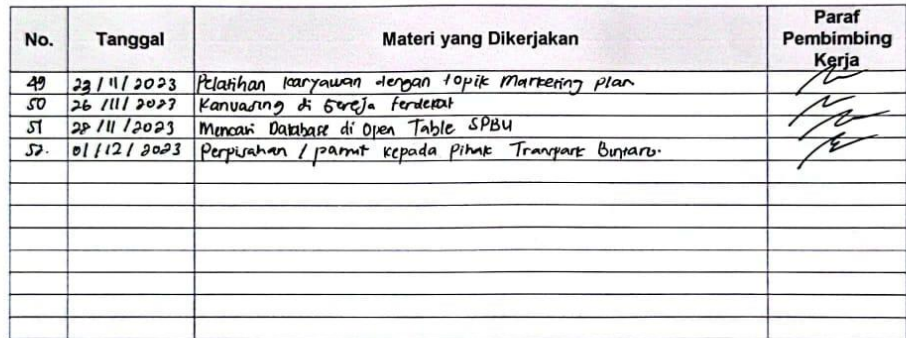 No. Tanggal Materi yang Dikerjakan Paraf Pembimbing Kerja
49 23/11/2023 Pelatihan karyawan dengan topik Marketing plan
50 26/11/2023 Kanvasing di Gereja terdekat
51 28/11/2023 Mencari Database di Open Table SPBU
52. 01/12/2023 Perpisahan / pamit kepada Pihak Transpark Bintaro.